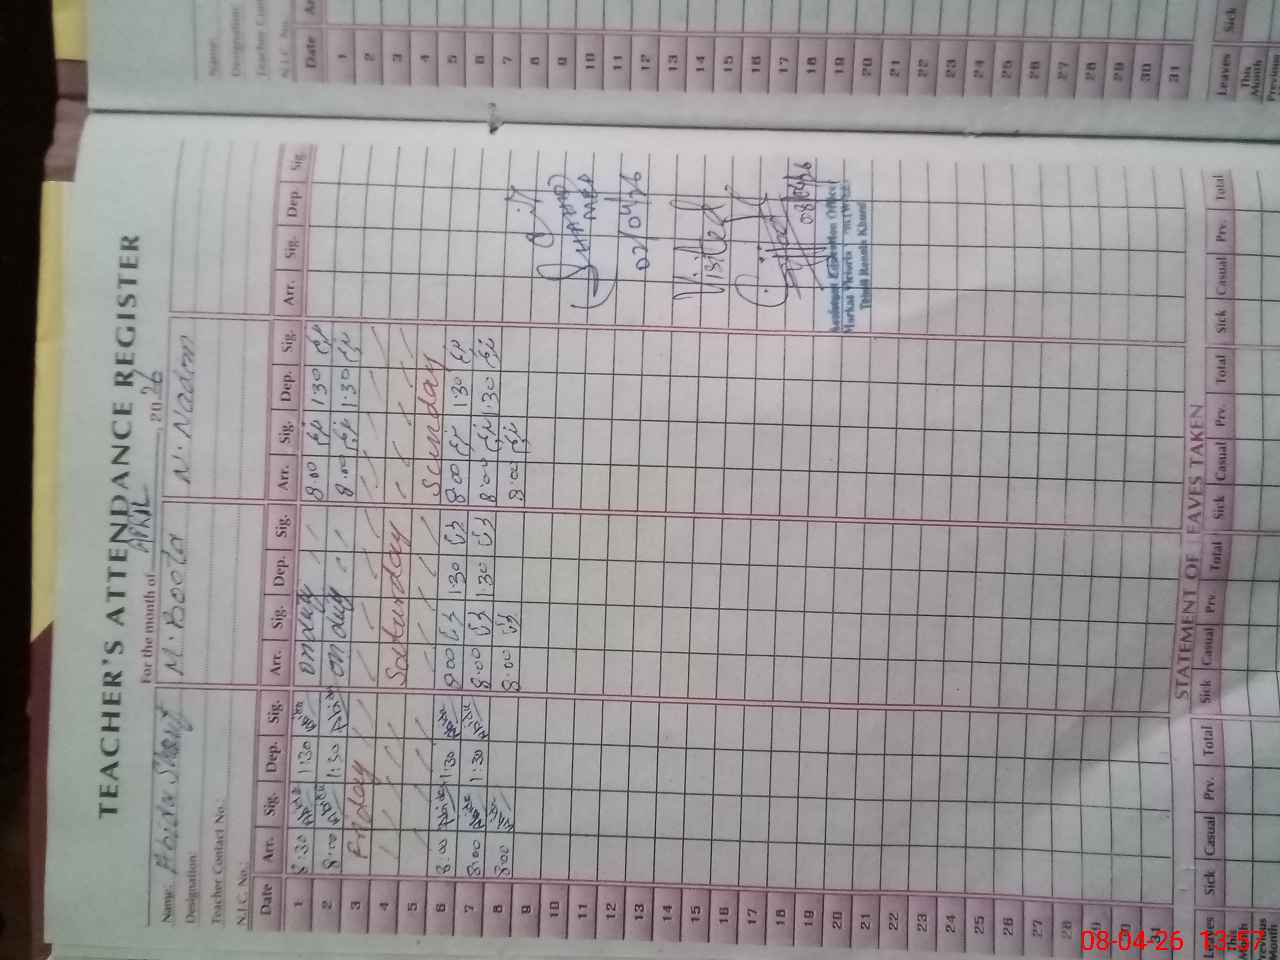 TEACHER'S ATTENDANCE REGISTER
For the month of APRIL, 2026
Name: Abida Sharif M. Boota N. Nadeem
Designation:
Teacher Contact No.:
N.I.C. No.:
Date Arr. Sig. Dep. Sig. Arr. Sig. Dep. Sig. Arr. Sig. Dep. Sig. Arr. Sig. Dep. Sig.
1 8:30 1:30 on duty 8:00 1:30
2 8:00 1:30 on duty 8:00 1:30
3 Friday
4 Saturday
5 Sunday
6 8:00 Abida 1:30 8:00 1:30 8:00 1:30
7 8:00 Abida 1:30 Abida 8:00 1:30 8:00 1:30
8 8:00 8:00 8:00
9
10
11
12
13
14
15
16
17
18
19
20
21
22
23
24
25
26
27
28
29
30
31
02/04/26
Visited
08/04/26
Assistant Education Officer
Markaz
Tehsil
STATEMENT OF LEAVES TAKEN
Leaves Sick Casual Prv. Total Sick Casual Prv. Total Sick Casual Prv. Total Sick Casual Prv. Total
This Month
Previous Month
Name:
Designation
N.I.C. No.
Date
1
2
3
4
5
6
7
8
9
10
11
12
13
14
15
16
17
18
19
20
21
22
23
24
25
26
27
28
29
30
31
Leaves Sick
This Month
Previous
08-04-26 13:57